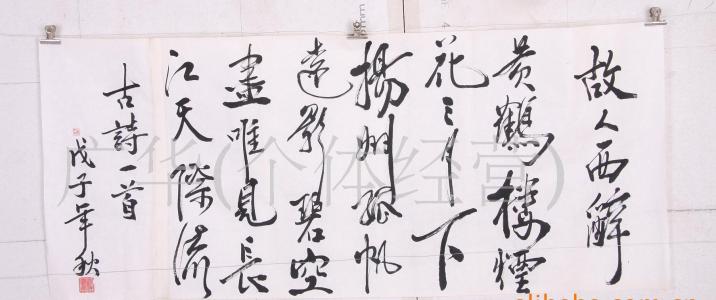 故人西辭
黄鶴樓煙
花三月下
揚州孤帆
遠影碧空
盡唯見長
江天際流
古詩一首
戊子年秋
广华(个体经营)